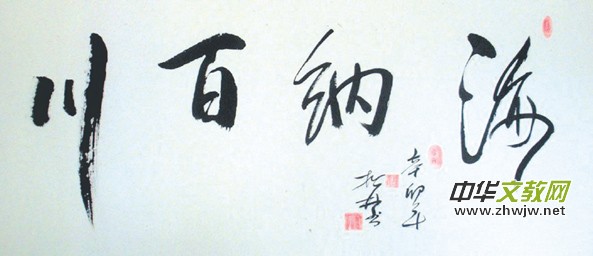 海纳百川
辛卯年
中华文教网
www.zhwjw.net